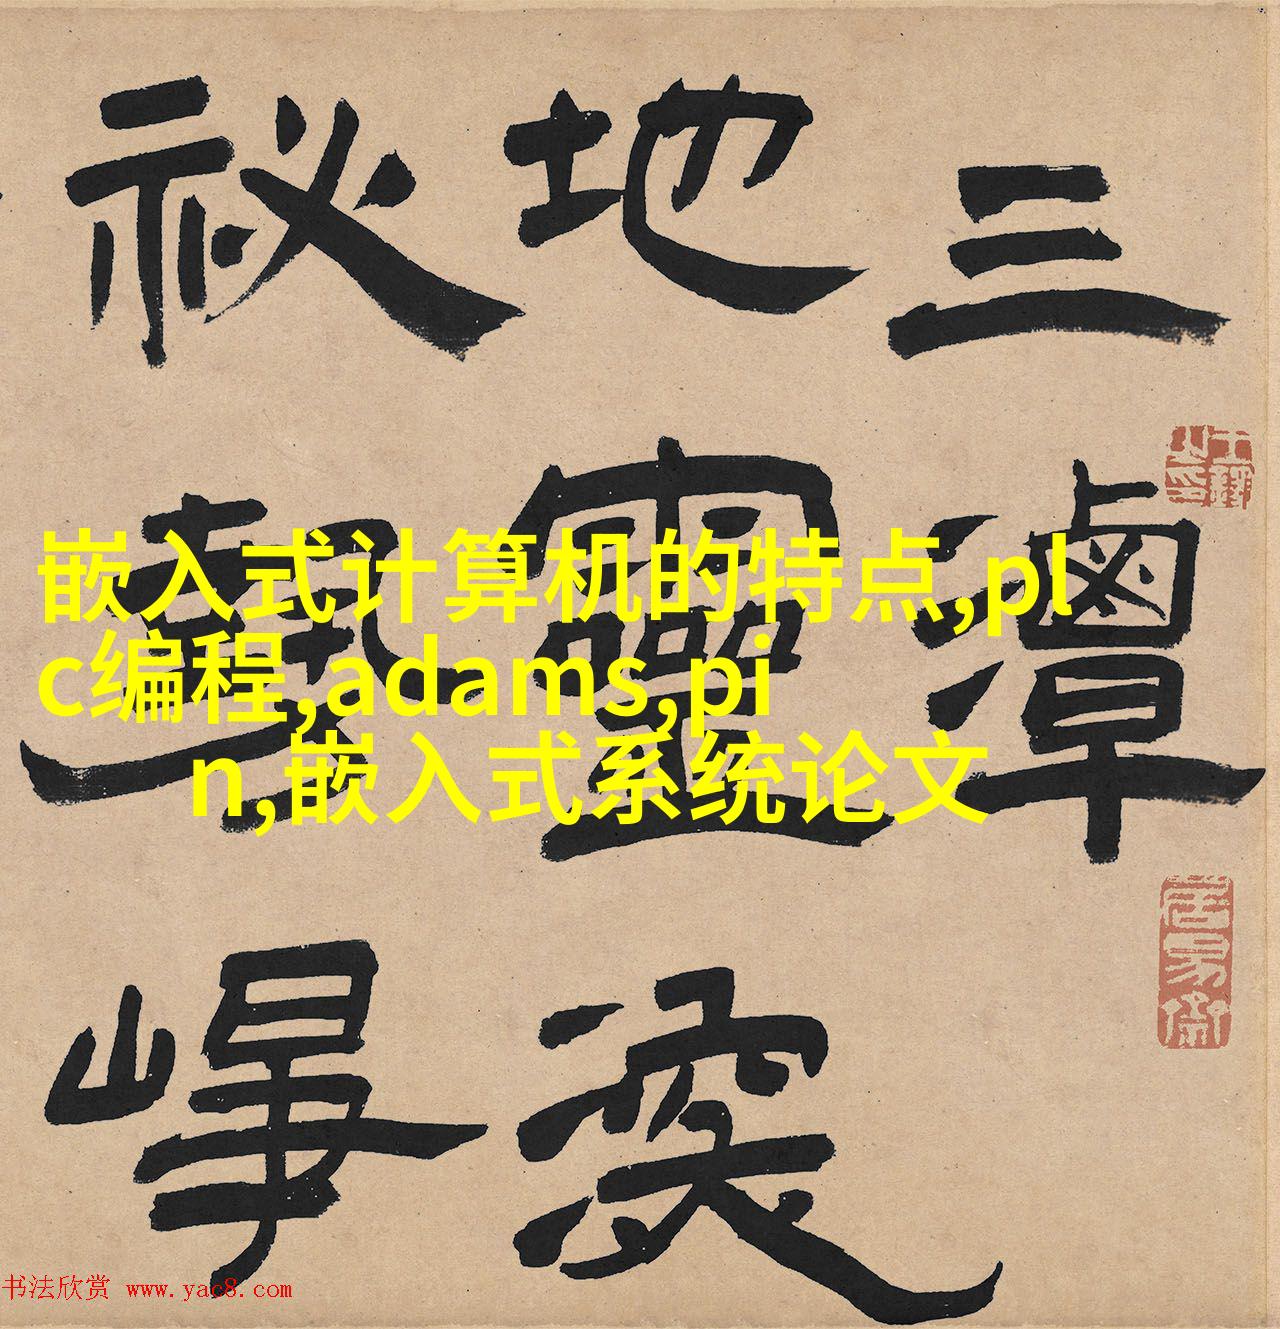 三潭
地靈
祕
崢
嵌入式计算机的特点,pl
c编程,adams,pi
n,嵌入式系统论文
书法欣赏 www.yac8.com